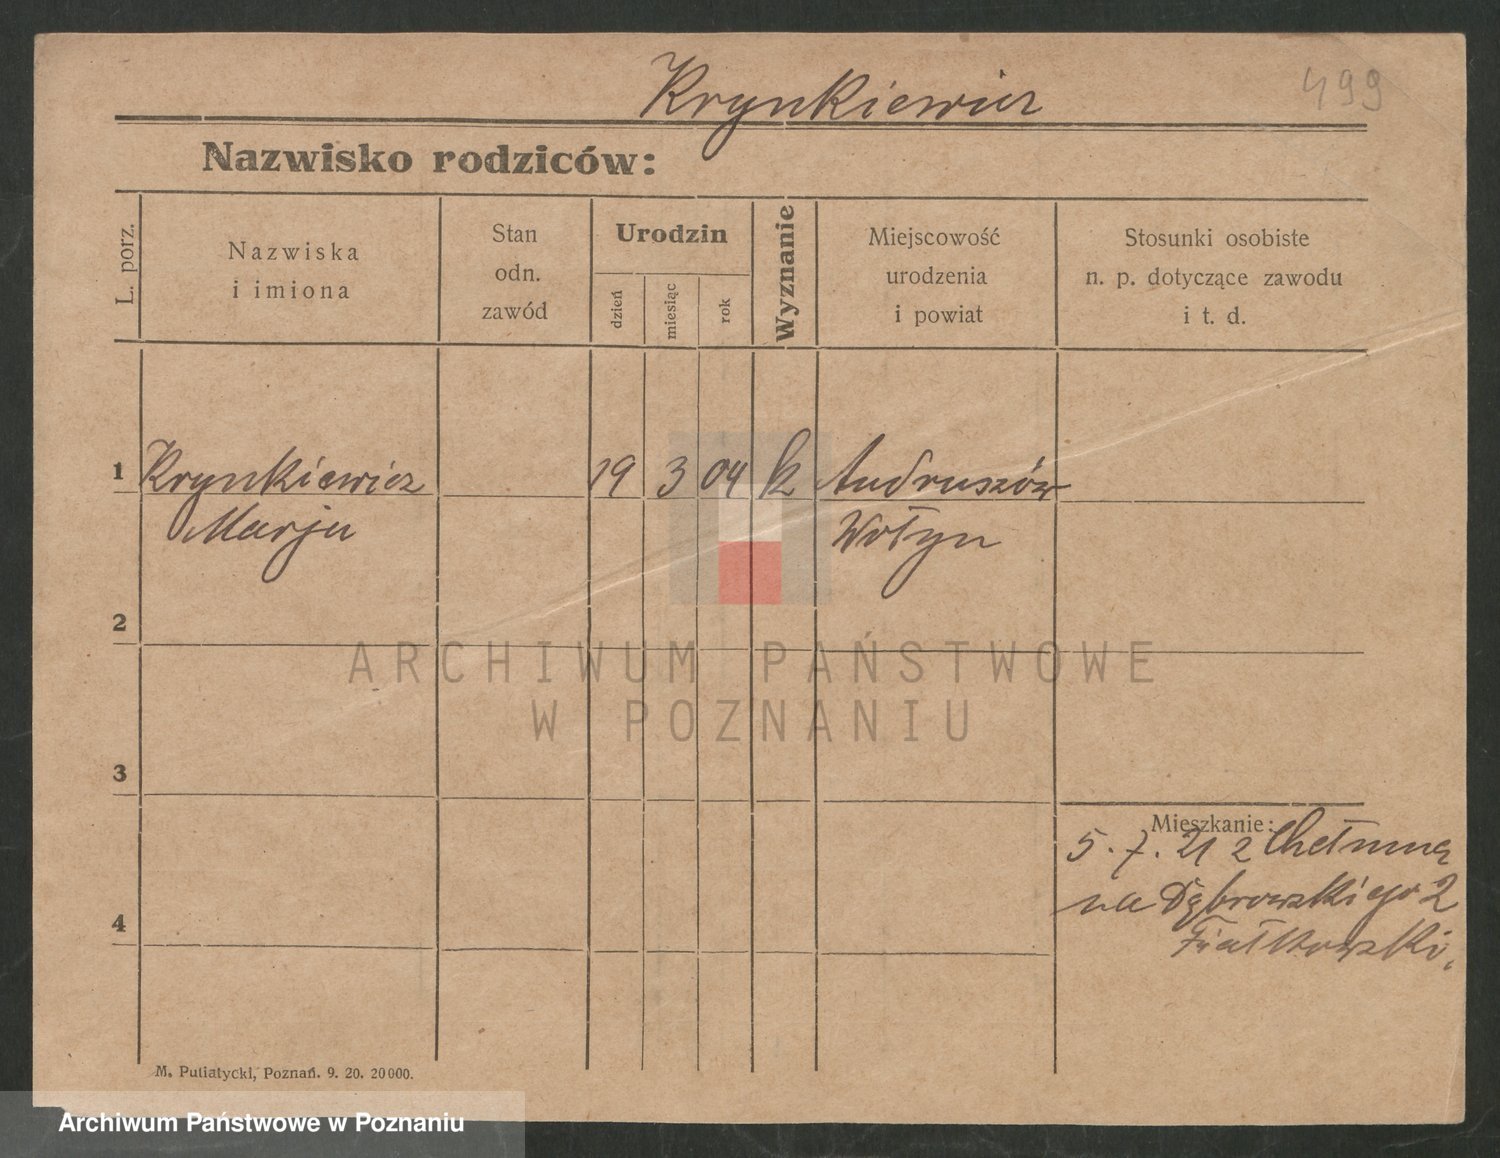 Krynkiewicz
499
Nazwisko rodziców:
L. porz.
Nazwiska
i imiona
Stan
odn.
zawód
Urodzin
dzień
miesiąc
rok
Wyznanie
Miejscowość
urodzenia
i powiat
Stosunki osobiste
n. p. dotyczące zawodu
i t. d.
1 Krynkiewicz 19 3 04 k Andruszów
Marja Wołyn
2
ARCHIWUM PAŃSTWOWE
W POZNANIU
3
Mieszkanie:
5. 7. 21 z Chełmna
na Dąbrowskiego 2
Fiałkowski.
4
M. Putiatycki, Poznań. 9. 20. 20000.
Archiwum Państwowe w Poznaniu